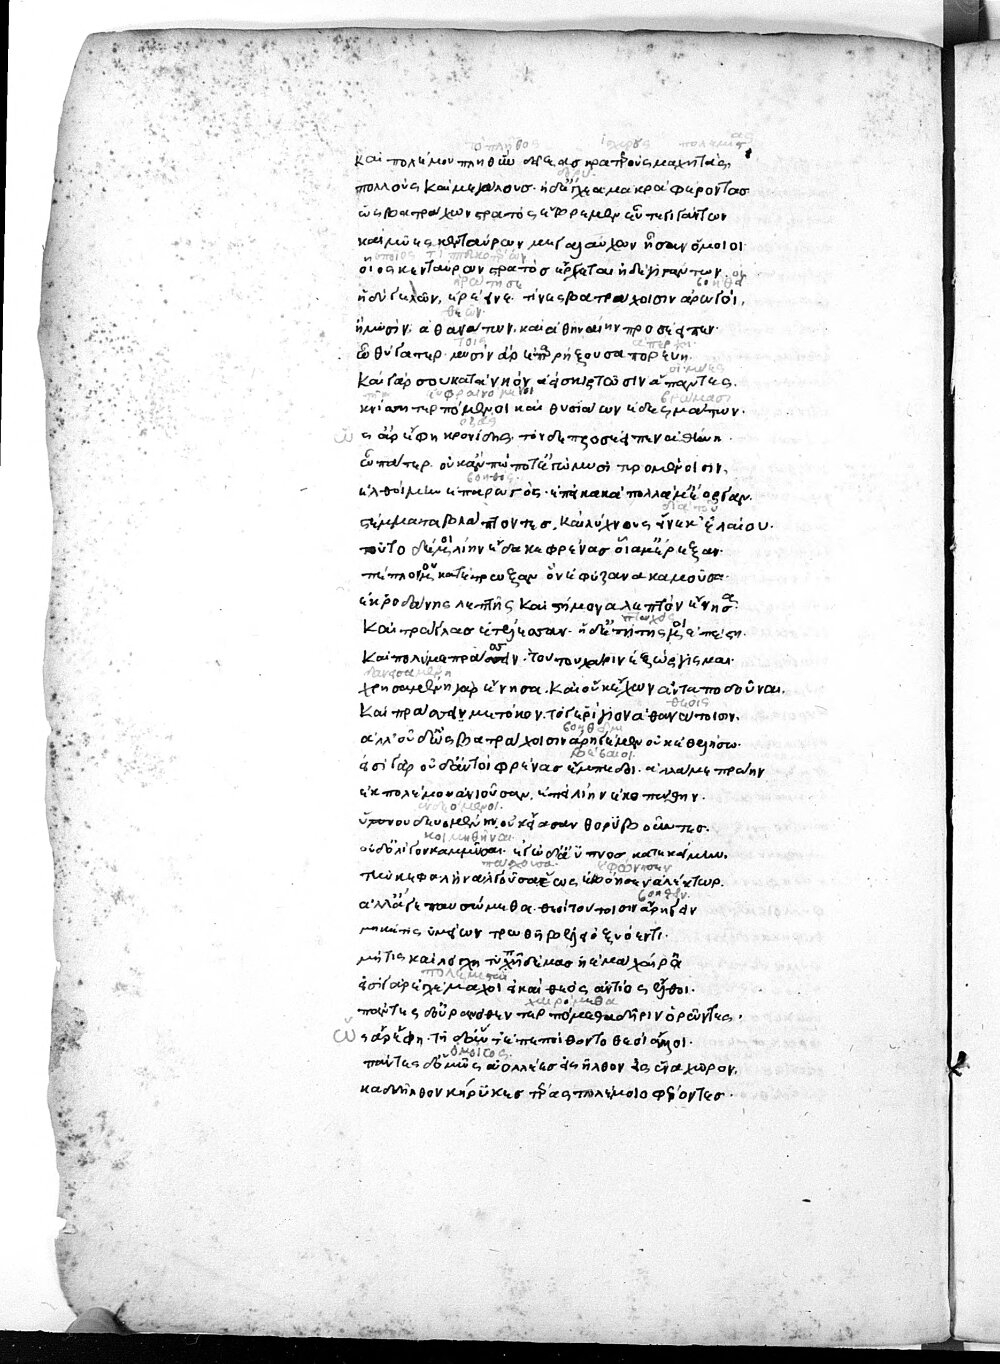 τὸ πλῆθος ἰσχυροὺς πολεμιστὰς
καὶ πολέμου πληθὺν δείξας κρατεροὺς μαχητάς
πολλοὺς καὶ μεγάλους· ἠδ' ἔγχεα μακρὰ φέροντας
ὡς βατράχων στρατὸς ἔβρεμεν εὖτε γιγάντων
καὶ μῦες κενταύρων μεγαλαύχων ἦσαν ὅμοιοι
οἷος κενταύρων στρατὸς ἔρχεται ἠδὲ γιγάντων
ἠρώτησε βοηθοὶ
ἡδὺ γελῶν, ἐρέεινε· τίνες βατράχοισιν ἀρωγοί,
θεῶν
ἢ μυσίν· ἀθανάτων, καὶ ἀθηναίην προσέειπεν·
ὦ θύγατερ· μυσὶν ἆρ' ἐπαρήξουσα πορεύῃ·
οἱ μύες
καὶ γὰρ σοῦ κατὰ νηὸν ἀεὶ σκιρτῶσιν ἅπαντες.
εὐφραινόμενοι βρώμασι
κνίσῃ τερπόμενοι καὶ θυσιάων ἐδεσμάτων·
ὣς ἄρ' ἔφη κρονίδης, τόνδε προσέειπεν ἀθήνη·
ὦ πάτερ· οὐκ ἄν πώποτ' ἐγὼ μυσὶ τειρομένοισιν,
βοηθὸς
ἐλθοίμην ἐπαρωγός· ἐπεὶ κακὰ πολλά μ' ἔοργαν.
διὰ τοῦ
στέμματα βλάπτοντες, καὶ λύχνους εἵνεκ' ἐλαίου.
τοῦτο δέ μοι λίην ἔδακε φρένας οἷά μ' ἔρεξαν·
πέπλον μου κατέτρωξαν ὃν ἐξύφανα καμοῦσα·
ἐκ ῥοδάνης λεπτῆς καὶ στήμονα λεπτὸν ἔνησα·
καὶ τρώγλας ἐτέλεσαν· ὁ δ' ἠπητής μοι ἐπέστη·
καὶ πολύ με πράσσει· τούτου χάριν ἐξώργισμαι·
δανεισαμένη
χρησαμένη γὰρ ἔνησα. καὶ οὐκ ἔχω ἀνταποδοῦναι.
θεοῖς
καὶ πράσσει με τόκον, τό γε ῥίγιον ἀθανάτοισιν.
ἀλλ' οὐδ' ὣς βατράχοισιν ἀρηγέμεν οὐκ ἐθελήσω·
βέβαιοι
εἰσὶ γὰρ οὐδ' αὐτοὶ φρένας ἔμπεδοι· ἀλλά με πρώην
ἐκ πολέμου ἀνιοῦσαν, ἐπεὶ λίην ἐκοπώθην·
ὕπνου δευομένην, οὐκ εἴασαν θορυβοῦντες·
κοιμηθῆναι
οὐδ' ὀλίγον καμμῦσαι· ἐγὼ δ' ἄϋπνος κατεκείμην,
ἐφώνησεν
τὴν κεφαλὴν ἀλγοῦσα ἕως ἐβόησεν ἀλέκτωρ.
βοηθεῖν
ἀλλ' ἄγε παυσώμεθα θεοὶ τούτοισιν ἀρήγειν
μή κέ τις ὑμείων τρωθῇ βέλει ὀξυόεντι·
μή τις καὶ λόγχῃ τυπῇ δέμας ἠὲ μαχαίρᾳ
εἰσὶ γὰρ ἀγχέμαχοι εἰ καὶ θεὸς ἀντίος ἔλθοι·
πάντες δ' οὐρανόθεν τερπόμεθα δῆριν ὁρῶντες·
ὣς ἄρ' ἔφη· τῇ δ' αὖτ' ἐπεπείθοντο θεοὶ ἄλλοι·
ὁμοίως
πάντες δ' ὁμῶς ἀολλέες ἦλθον ἐς ἕνα χῶρον,
καδδ' ἦλθον κήρυκες τέρας πολέμοιο φέροντες·